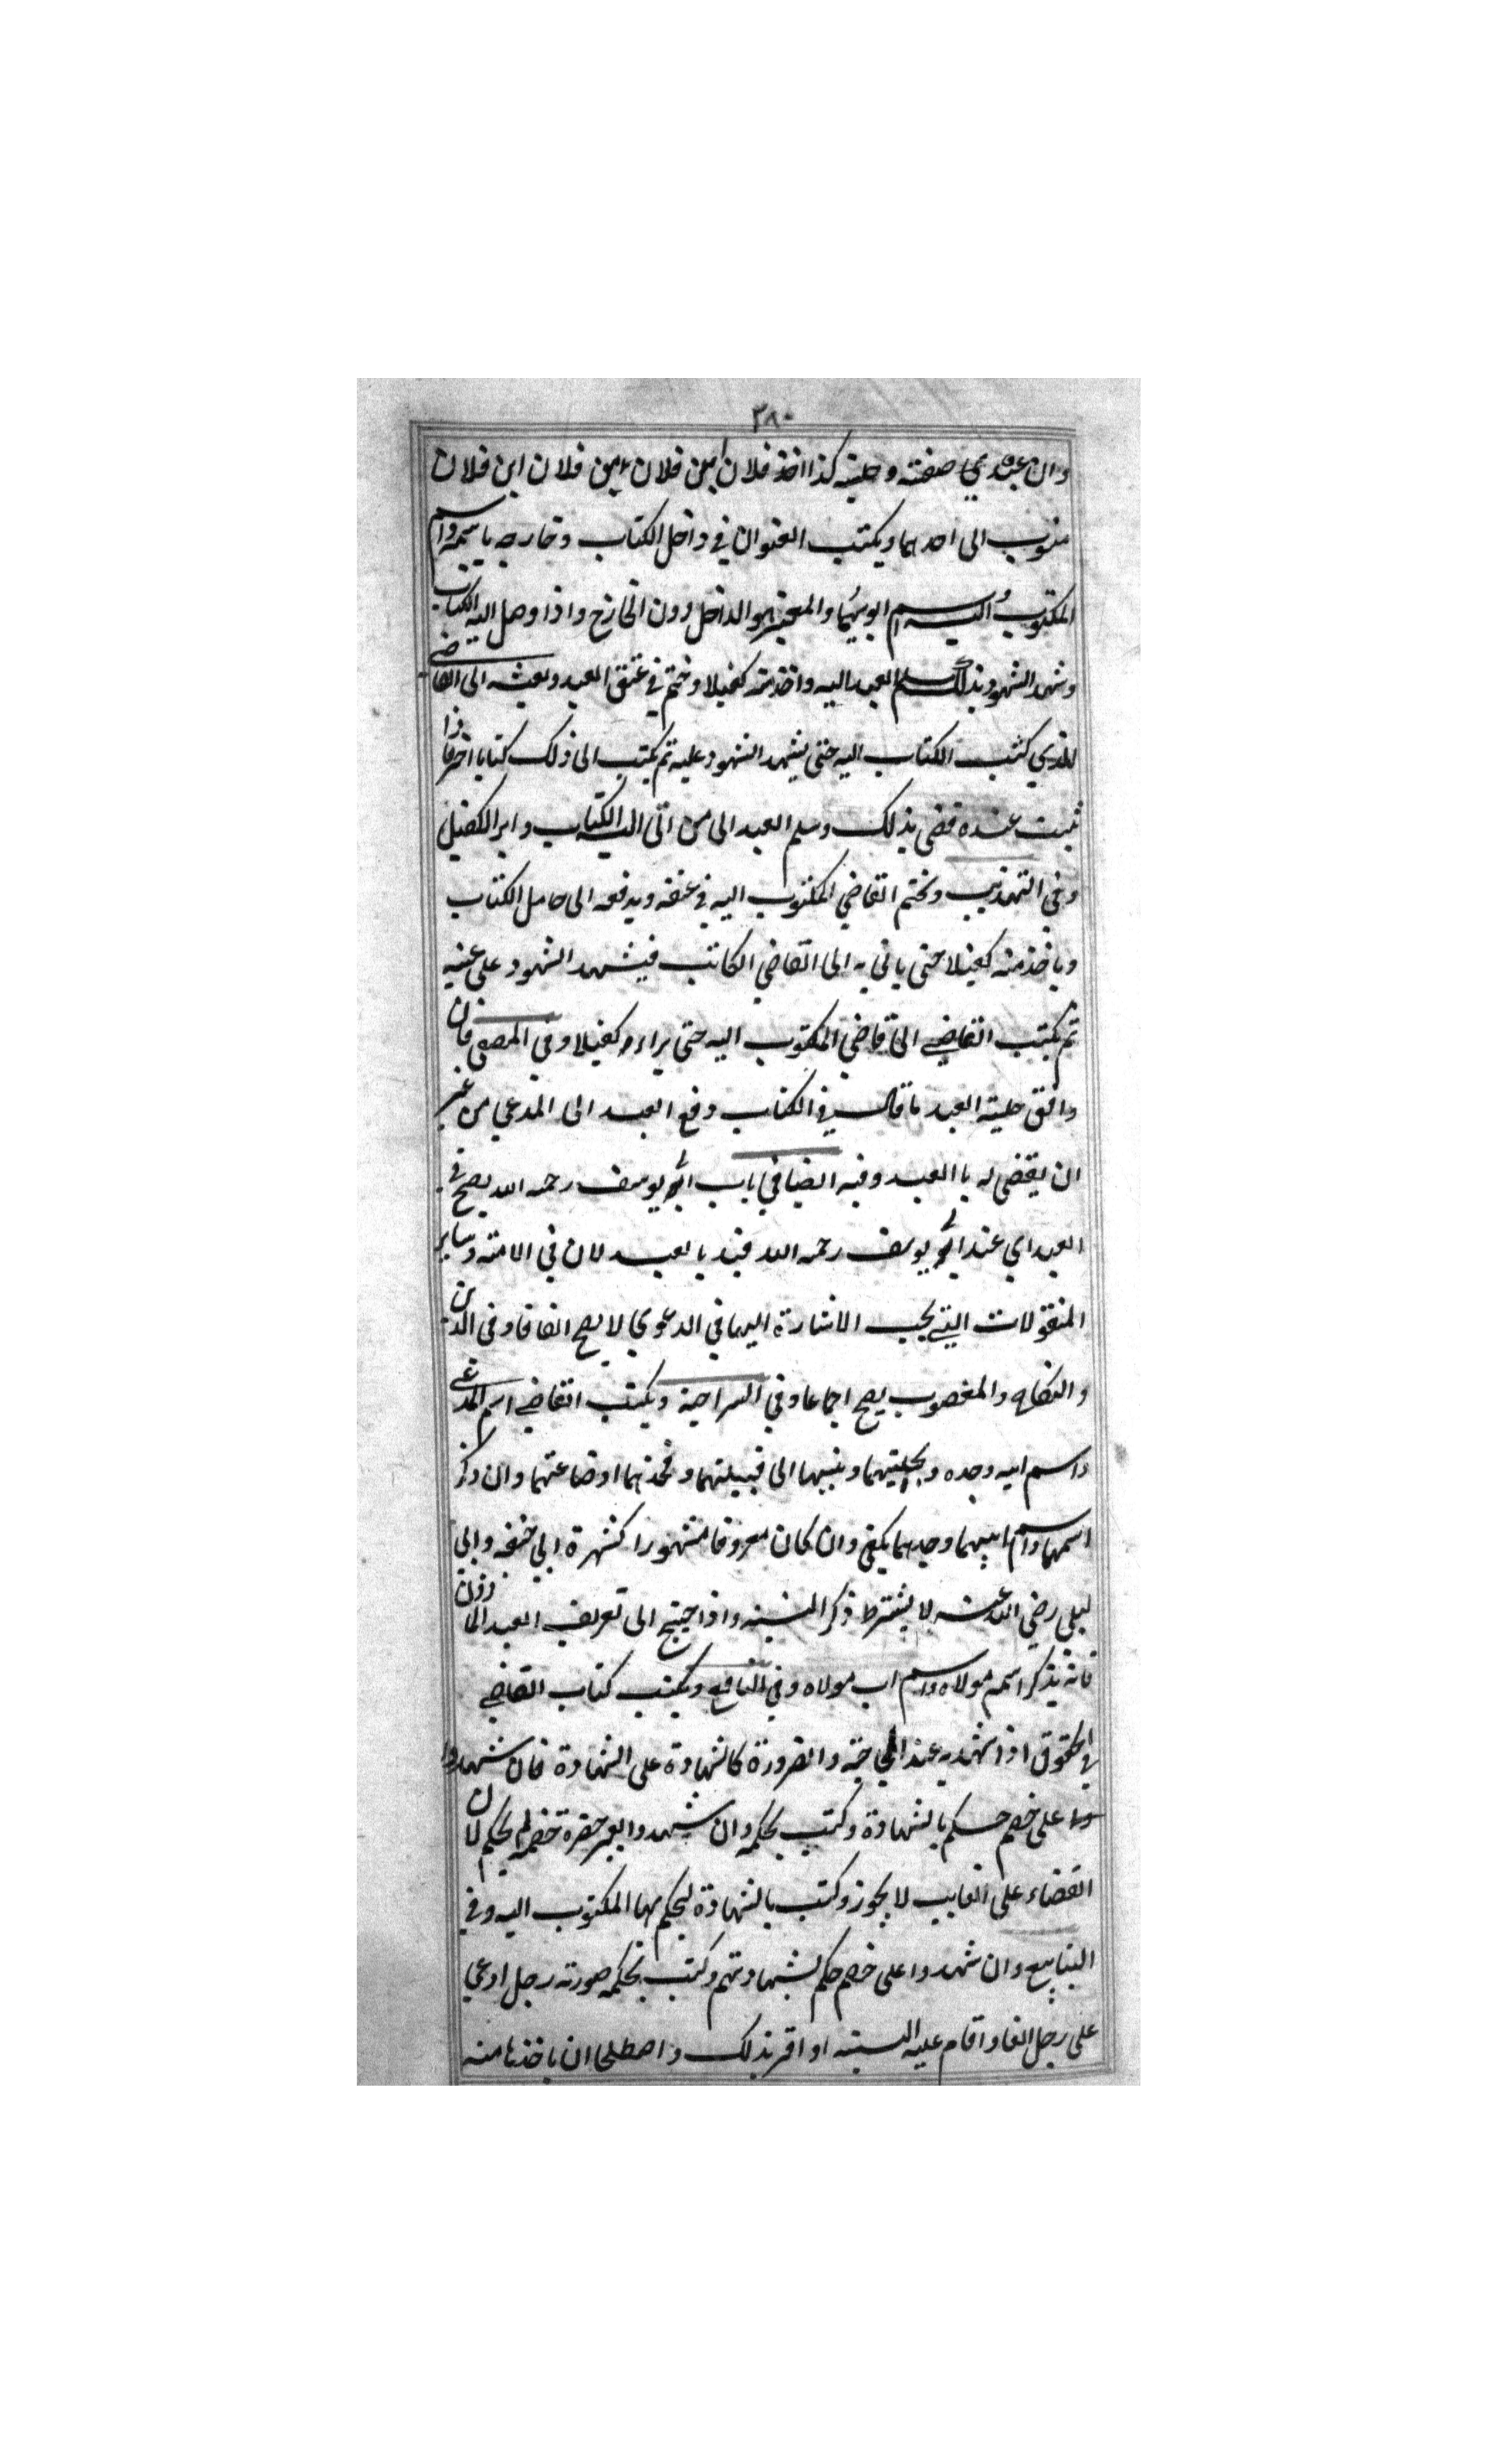 ٣٨٠
وان عبدي صفته وحليته كذا اخذ فلان ابن فلان ابن فلان ابن فلان
منسوب الى احدهما ويكتب العنوان في داخل الكتاب وخارجه باسمه واسم
المكتوب اليه واسم ابويهما والمعتبر هو الداخل دون الخارج واذا وصل اليه الكتاب
وشهد الشهود بذلك سلم العبد اليه واخذ منه كفيلا وختم في عنق العبد وبعثه الى القاضي
الذي كتب الكتاب اليه حتى يشهد الشهود عليه ثم يكتب الى ذلك كتابا اخر فاذا
ثبت عنده قضى بذلك وسلم العبد الى من اتى اليه الكتاب وابرا الكفيل
وفي التهذيب وختم القاضي المكتوب اليه في عنقه ويدفعه الى حامل الكتاب
وياخذ منه كفيلا حتى ياتي به الى القاضي الكاتب فيشهد الشهود على عينه
ثم يكتب القاضي الى قاضي المكتوب اليه حتى براءه كفيلا وفي المصفى فان
وافق حلية العبد ما قال في الكتاب دفع العبد الى المدعي من غير
ان يقضى له با العبد وفيه ايضا في باب ابي يوسف رحمه الله يصح في
العبد اي عند ابي يوسف رحمه الله قيد بالعبد لان في الامته وساير
المنقولات التي يجب الاشارة اليها في الدعوي لا يصح اتفاقا وفي الدين
والنكاح والمغصوب يصح اجماعا وفي السراجية ويكتب القاضي اسم المدعي
واسم ابيه وجده وبحليتهما وينسبها الى قبيلتهما وفخذهما او صناعتهما وان ذكر
اسمهما واسم ابيهما وجدهما يكفي وان كان معروفا مشهورا كشهرة ابي حنيفه وابي
ليلى رضي الله عنه لا يشترط ذكر النسبه واذا احتيج الى تعريف العبد الماذون
فانه يذكر اسمه مولاه واسم اب مولاه وفي النافع ويكتب كتاب القاضي
في الحقوق اذا شهد به عند الحاجة والضرورة كالشهادة على الشهادة فان شهدوا
على خصم حكم بالشهادة وكتب بحكمه وان شهدوا بغير حضرة خصمه لم يحكم لان
القضاء على الغايب لا يجوز وكتب بالشهادة ليحكم بها المكتوب اليه وفي
الينابيع وان شهدوا على خصم حكم بشهادتهم وكتب بحكمه صورته رجل ادعي
على رجل الفا واقام عليه البينه او اقر بذلك واصطلحا ان ياخذها منه